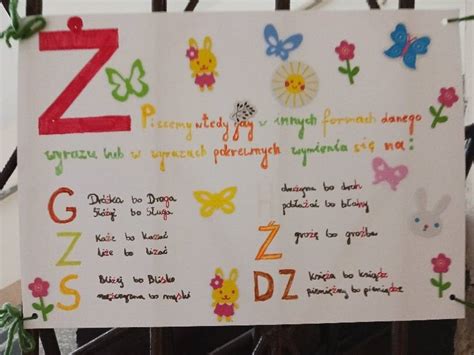 Ż
Piszemy wtedy gdy w innych formach danego
wyrazu lub w wyrazach pokrewnych wymienia się na:
G
Dróżka bo Droga
bo Sługa
Z
Każe bo Kazać
liże bo lizać
S
Bliżej bo Blisko
mężczyzna bo męski
H
drużyna bo druh
bo błahy
Ź
grożę bo groźba
DZ
Księża bo ksiądz
pieniężny bo pieniądze